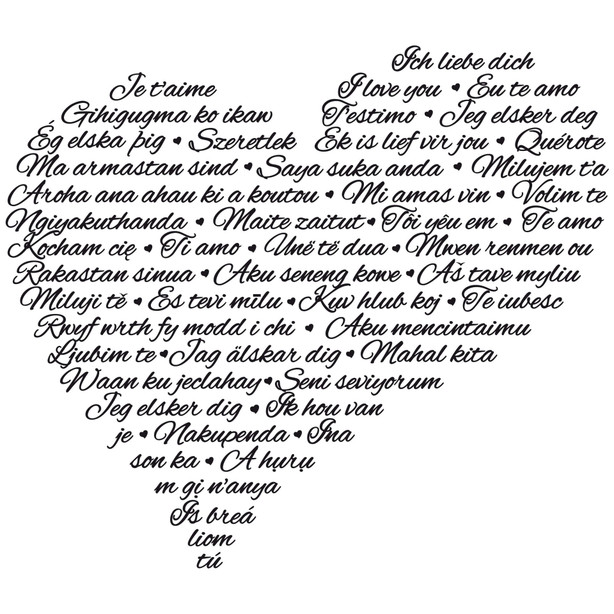 Ich liebe dich
Je t'aime I love you ♥ Eu te amo
Gihigugma ko ikaw Testimo ♥ Jeg elsker deg
Ég elska þig ♥ Szeretlek Ek is lief vir jou ♥ Quérote
Ma armastan sind ♥ Saya suka anda ♥ Milujem t'a
Aroha ana ahau ki a koutou ♥ Mi amas vin ♥ Volim te
Ngiyakuthanda ♥ Maite zaitut ♥ Tôi yêu em ♥ Te amo
Kocham cię ♥ Ti amo ♥ Unë të dua ♥ Mwen renmen ou
Rakastan sinua ♥ Aku seneng kowe ♥ Aš tave myliu
Miluji tě ♥ Es tevi mīlu ♥ Kuv hlub koj ♥ Te iubesc
Rwyf wrth fy modd i chi ♥ Aku mencintaimu
Ljubim te ♥ Jag älskar dig ♥ Mahal kita
Waan ku jeclahay ♥ Seni seviyorum
Jeg elsker dig ♥ Ik hou van
je ♥ Nakupenda ♥ Ina
son ka ♥ A hụrụ
m gị n'anya
Is breá
liom
tú